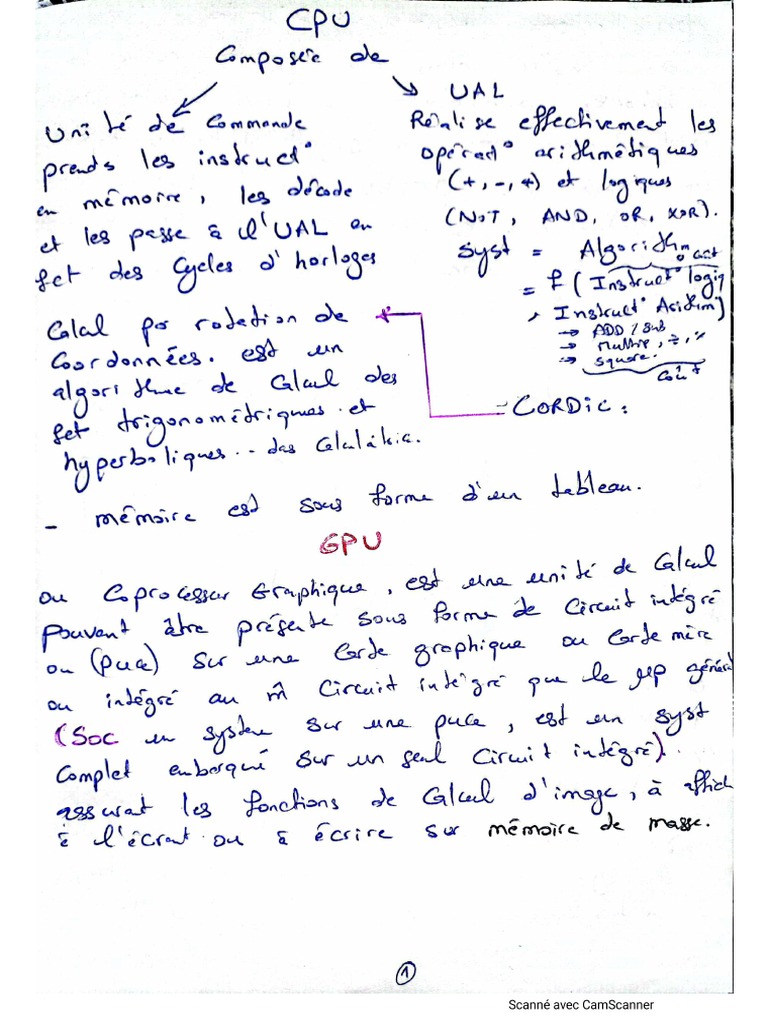 CPU
Composée de
Unité de Commande
prends les instruct°
en mémoire, les décode
et les passe à l'UAL en
fct des Cycles d'horloges
UAL
Réalise effectivement les
opérat° arithmétiques
(+, -, *) et logiques
(NOT, AND, OR, XOR).
Syst = Algorithm
= f (Instruct° logiq
, Instruct° Arithm)
→ ADD / Sub
→ Multip, ÷, %
→ Square.
Coût
- CORDIC :
Calcul par rotation de
Coordonnées. est un
algorithme de Calcul des
fct trigonométriques et
hyperboliques.. das
- mémoire est sous forme d'un tableau.
GPU
ou Coprocesseur Graphique, est une unité de Calcul
Pouvant être présente sous forme de Circuit intégré
ou (puce) sur une Carte graphique ou Carte mère
ou intégré au m̂ Circuit intégré que le µp général
(SOC un système sur une puce, est un syst
Complet embarqué sur un seul Circuit intégré).
assurat les fonctions de Calcul d'image, à affich
à l'écrat ou à écrire sur mémoire de masse.
1
Scanné avec CamScanner